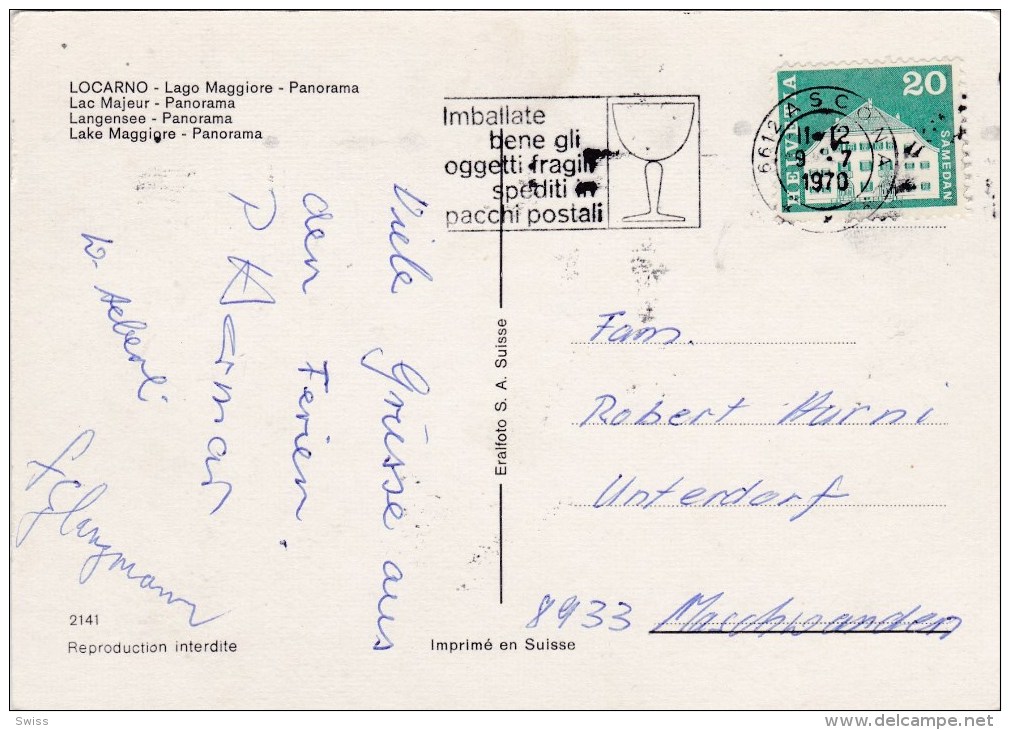 LOCARNO - Lago Maggiore - Panorama
Lac Majeur - Panorama
Langensee - Panorama
Lake Maggiore - Panorama
Imballate
bene gli
oggetti fragili
spediti in
pacchi postali
6612 ASCONA
11-12
9.-7
1970
HELVETIA
20
SAMEDAN
Viele Grüsse aus
den Ferien.
W. Aeberli
Eralfoto S. A. Suisse
Fam.
Robert Hurni
Unterdorf
8933 Maschwanden
2141
Reproduction interdite
Imprimé en Suisse
Swiss
www.delcampe.net